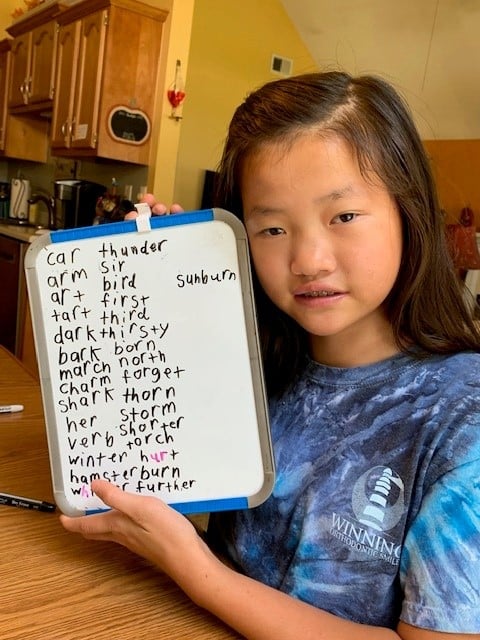 car thunder
arm sir
art bird sunburn
tart first
dark third
bark thirsty
march born
charm north
shark forget
her thorn
verb storm
winter shorter
hamster torch
hurt
burn
further
WINNING
ORTHODONTIC SMILES